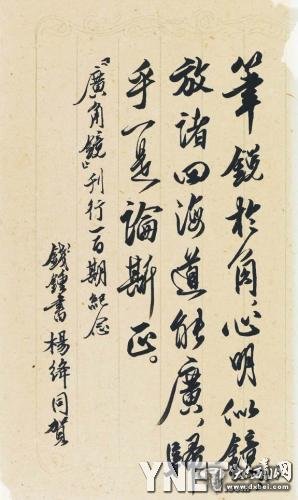 筆銳於角，心明似鏡，
放諸四海道能廣，歸
乎一是論斯正。
『廣角鏡』刊行一百期紀念
錢鍾書 楊絳同賀
YNET